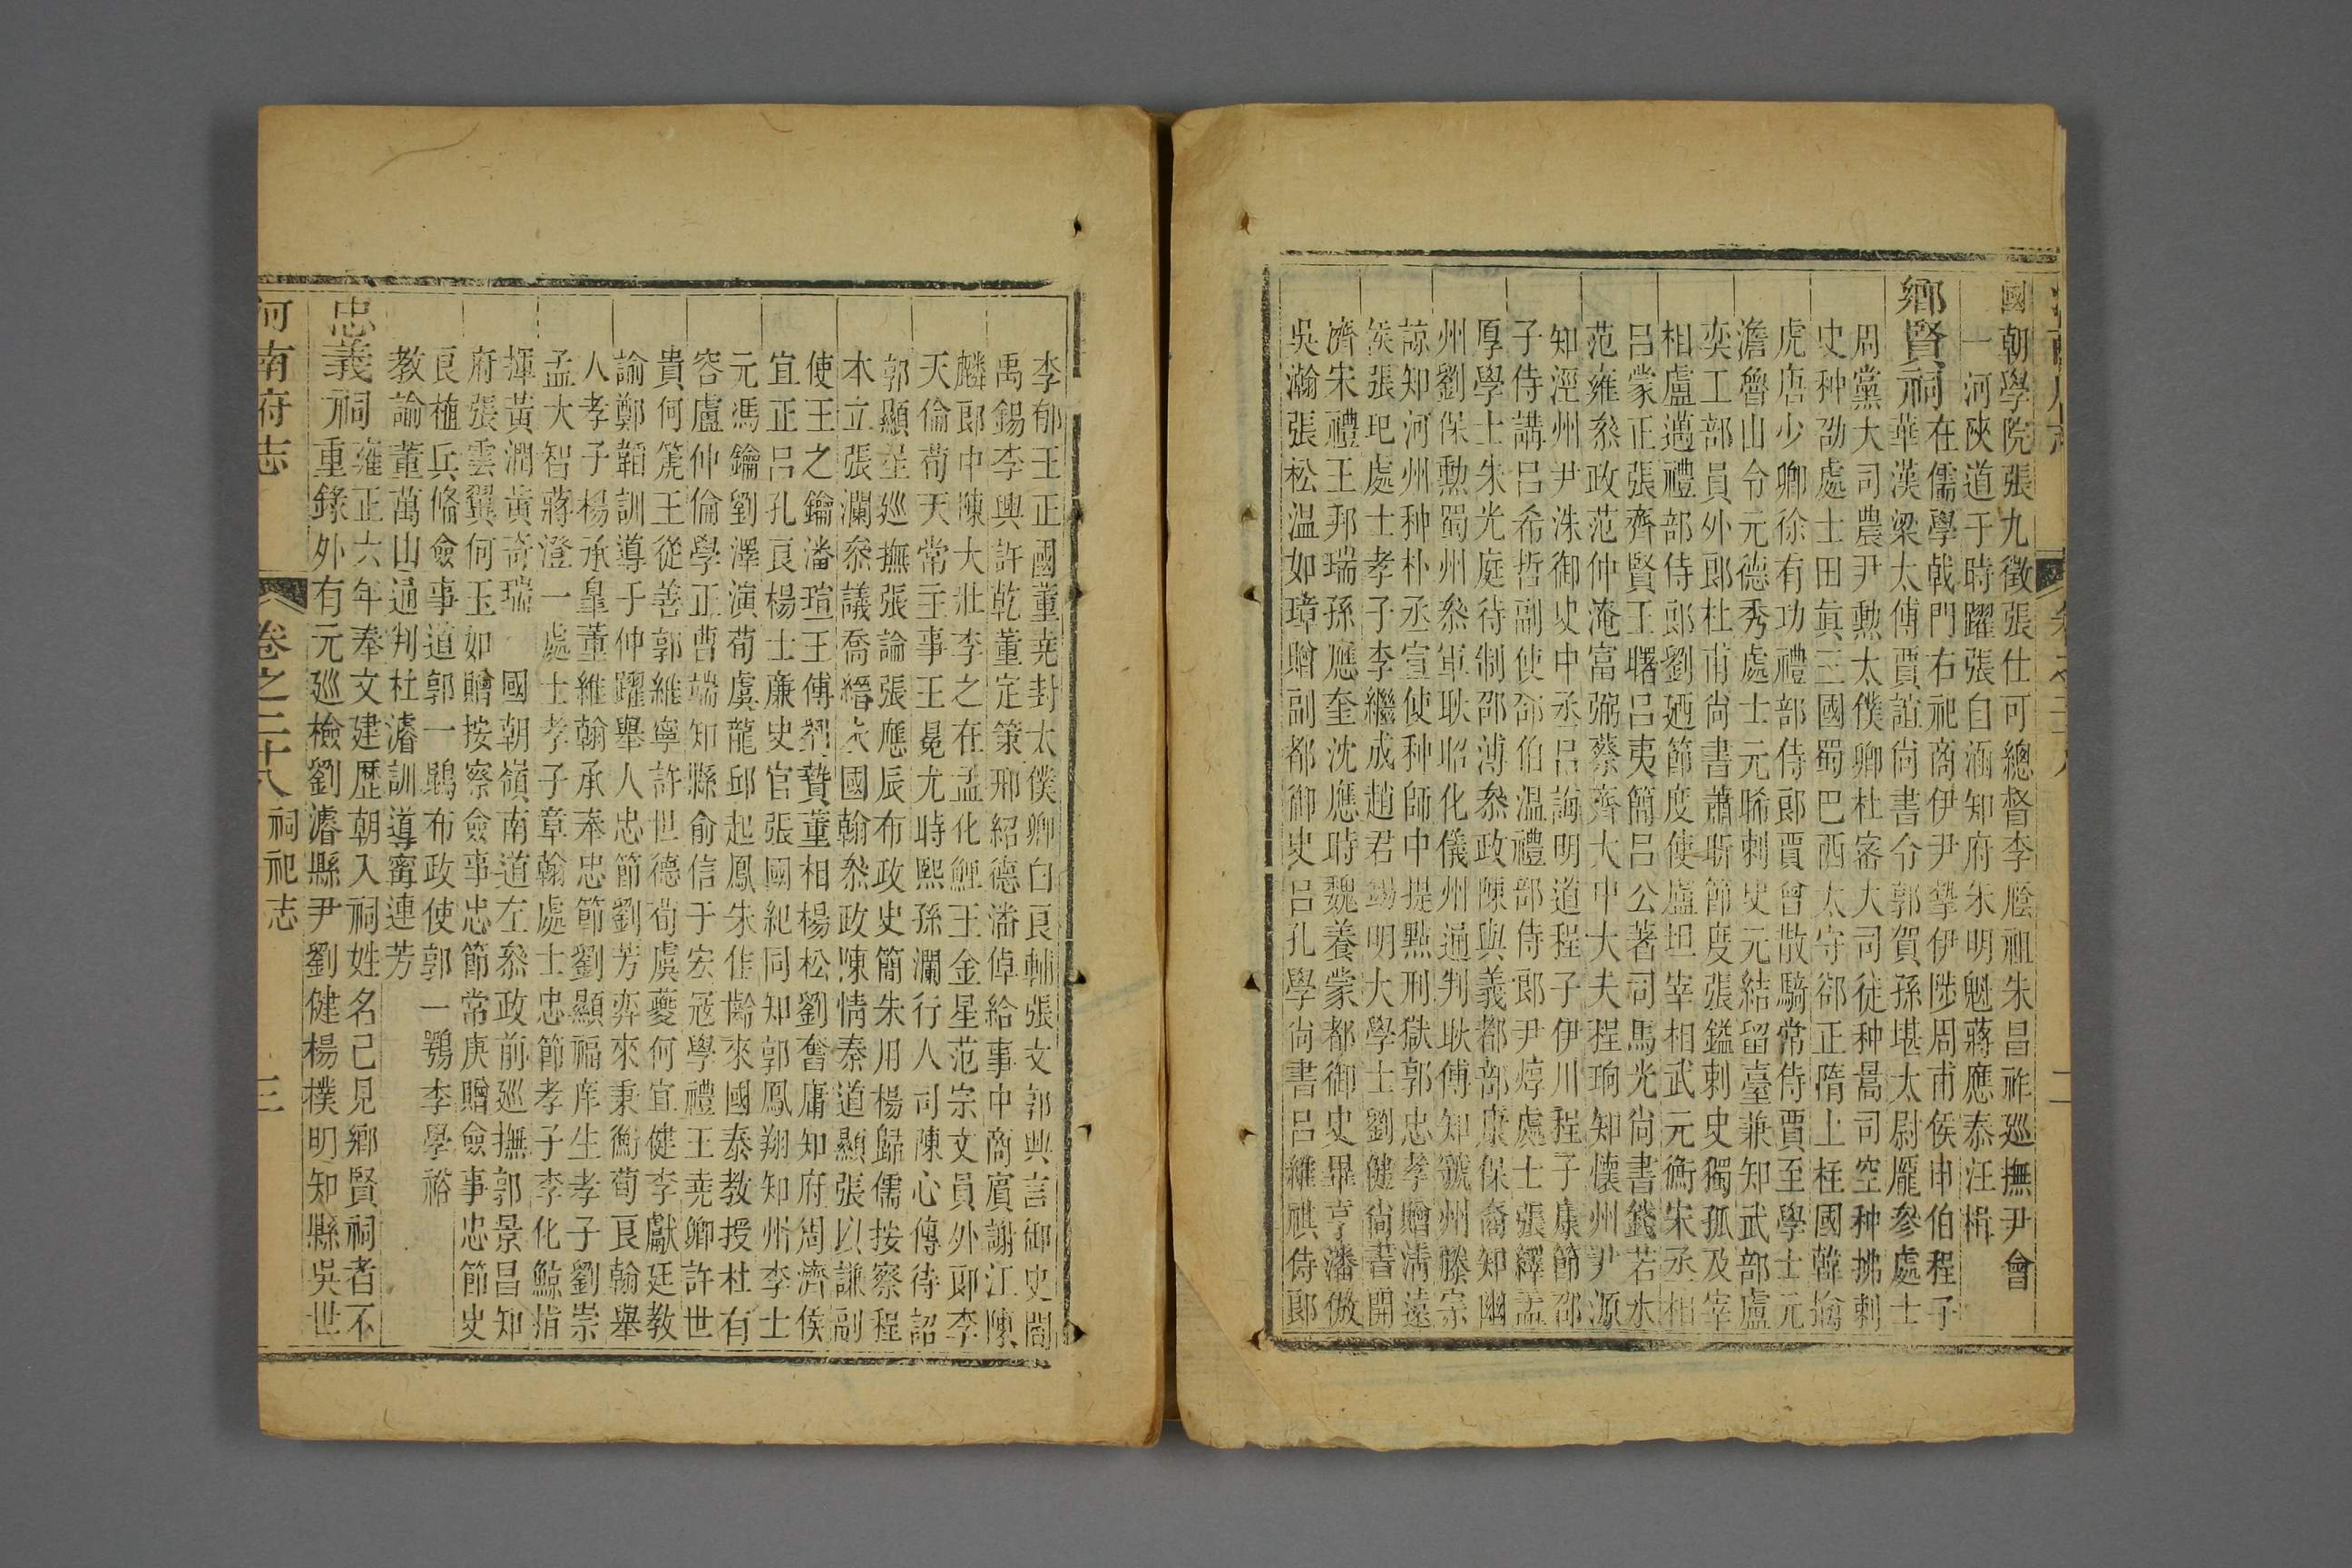 國朝學院張九徵張仕可總督李廕祖朱昌祚巡撫尹會
一河陜道于時躍張自涵知府朱明魁蔣應泰汪楫
鄉賢祠在儒學戟門右祀商伊尹摯伊陟周甫侯申伯程子
華漢梁太傅賈誼尚書令郭賀孫堪太尉龐參處士
周黨大司農尹勲太僕卿杜密大司徒种暠司空种拂刺
史种劭處士田眞三國蜀巴西太守郤正隋上柱國韓擒
虎唐少卿徐有功禮部侍郎賈曾散騎常侍賈至學士元
澹魯山令元德秀處士元晞刺史元結留臺兼知武部盧
奕工部員外郎杜甫尚書蕭昕節度張鎰刺史獨孤及宰
相盧邁禮部侍郎劉廼節度使盧坦宰相武元衡宋丞相
呂蒙正張齊賢王曙呂夷簡呂公著司馬光尚書錢若水
范雍叅政范仲淹富弼蔡齊大中大夫程珦知懷州尹源
知涇州尹洙御史中丞呂誨明道程子伊川程子康節邵
子侍講呂希哲副使邵伯温禮部侍郎尹焞處士張繹孟
厚學士朱光庭待制邵溥叅政陳與義都部康保裔知幽
州劉保勲蜀州叅軍耿昭化儀州通判耿傅知虢州滕宗
諒知河州种朴丞宣使种師中提點刑獄郭忠孝贈淸遠
侯張玘處士孝子李繼成趙君錫明大學士劉健尚書開
濟宋禮王邦瑞孫應奎沈應時魏養蒙都御史畢亨潘倣
吳瀚張松温如璋贈副都御史呂孔學尚書呂維祺侍郎
李郁王正國董堯封太僕卿白良輔張文郭興言御史閻
禹錫李興許乾董定策邢紹德潘倬給事中喬賓謝江陳
麟郎中陳大壯李之在孟化鯉王金星范宗文員外郎李
天倫荀天常主事王冕尤時熙孫瀾行人司陳心傳待詔
郭顯星巡撫張論張應辰布政史簡朱用楊歸儒按察程
本立張瀾叅議喬縉衣國翰叅政陳情秦道顯張以謙副
使王之鑰潘瑄王傅劉贄董相楊松劉奮庸知府周濟侯
宜正呂孔良楊士廉史官張國紀同知郭鳳翔知州李士
元馮鑰劉澤演荀虞龍邱起鳳朱佳齡來國泰教授杜有
容盧仲倫學正曹端知縣俞信于宏冦學禮王堯卿許世
貴何箎王從善郭維寧許世德荀虞夔何宜健李獻廷教
諭鄭韜訓導于仲躍舉人忠節劉芳弈來秉衡荀良翰舉
人孝子楊承皐董維翰承奉忠節劉顯福庠生孝子劉崇
孟大智蔣澄一處士孝子章翰處士忠節孝子李化鯨指
揮黃潤黃奇瑞　國朝嶺南道左叅政前巡撫郭景昌知
府張雲翼何玉如贈按察僉事忠節常庚贈僉事忠節史
良植兵備僉事道郭一鶚布政使郭一鶚李學裕
教諭董萬山通判杜濬訓導甯連芳
忠義祠雍正六年奉文建歷朝入祠姓名已見鄉賢祠者不
重錄外有元巡檢劉濬縣尹劉健楊樸明知縣吳世
河南府志　卷之二十八祠祀志　三